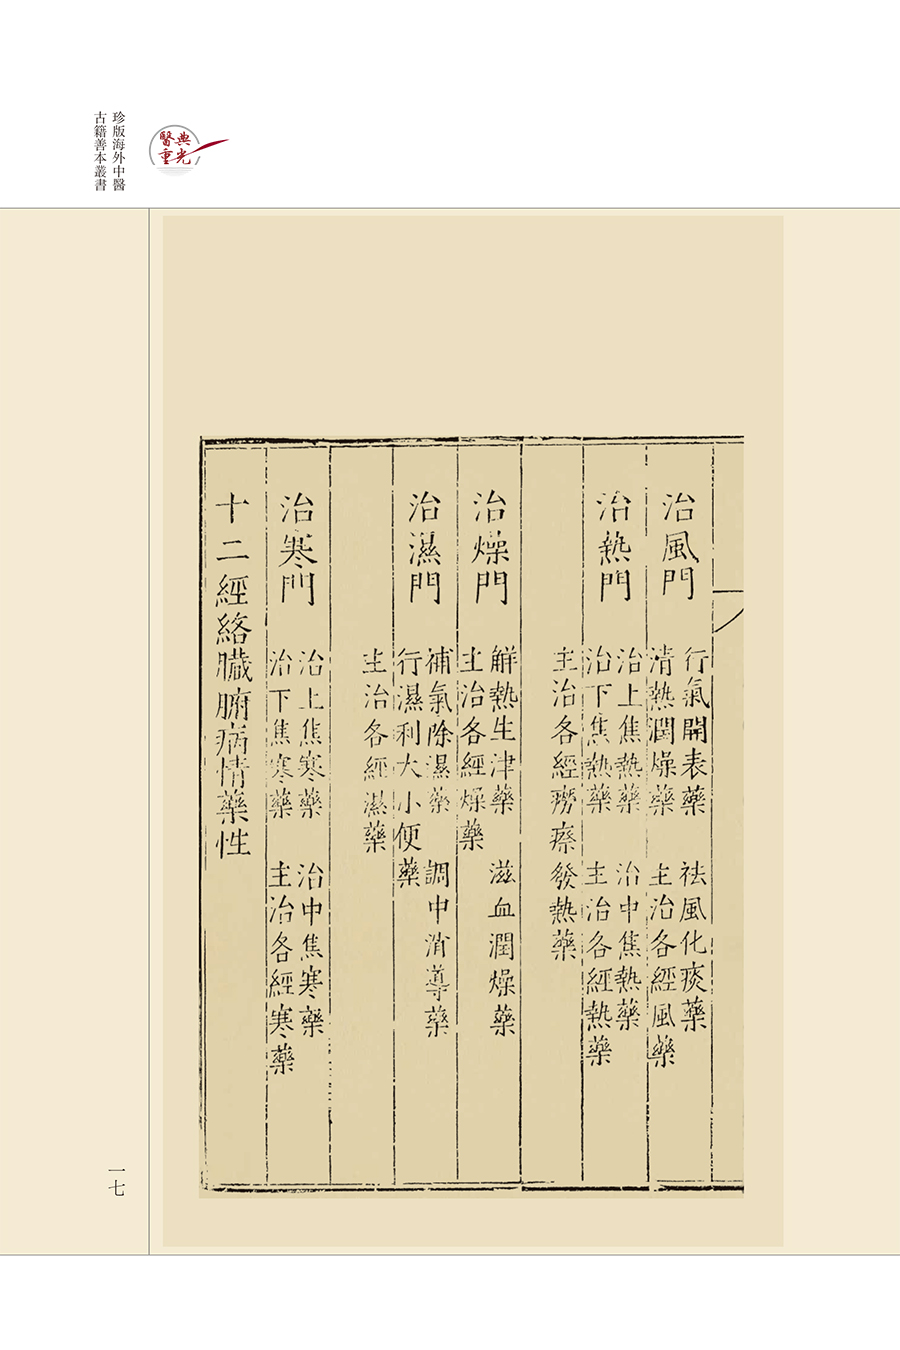 珍版海外中醫
古籍善本叢書
醫典
重光
治風門
行氣開表藥 祛風化痰藥
清熱潤燥藥 主治各經風藥
治熱門
治上焦熱藥 治中焦熱藥
治下焦熱藥 主治各經熱藥
主治各經癆瘵發熱藥
治燥門
解熱生津藥 滋血潤燥藥
主治各經燥藥
治濕門
補氣除濕藥 調中消導藥
行濕利大小便藥
主治各經濕藥
治寒門
治上焦寒藥 治中焦寒藥
治下焦寒藥 主治各經寒藥
十二經絡臟腑病情藥性
一七